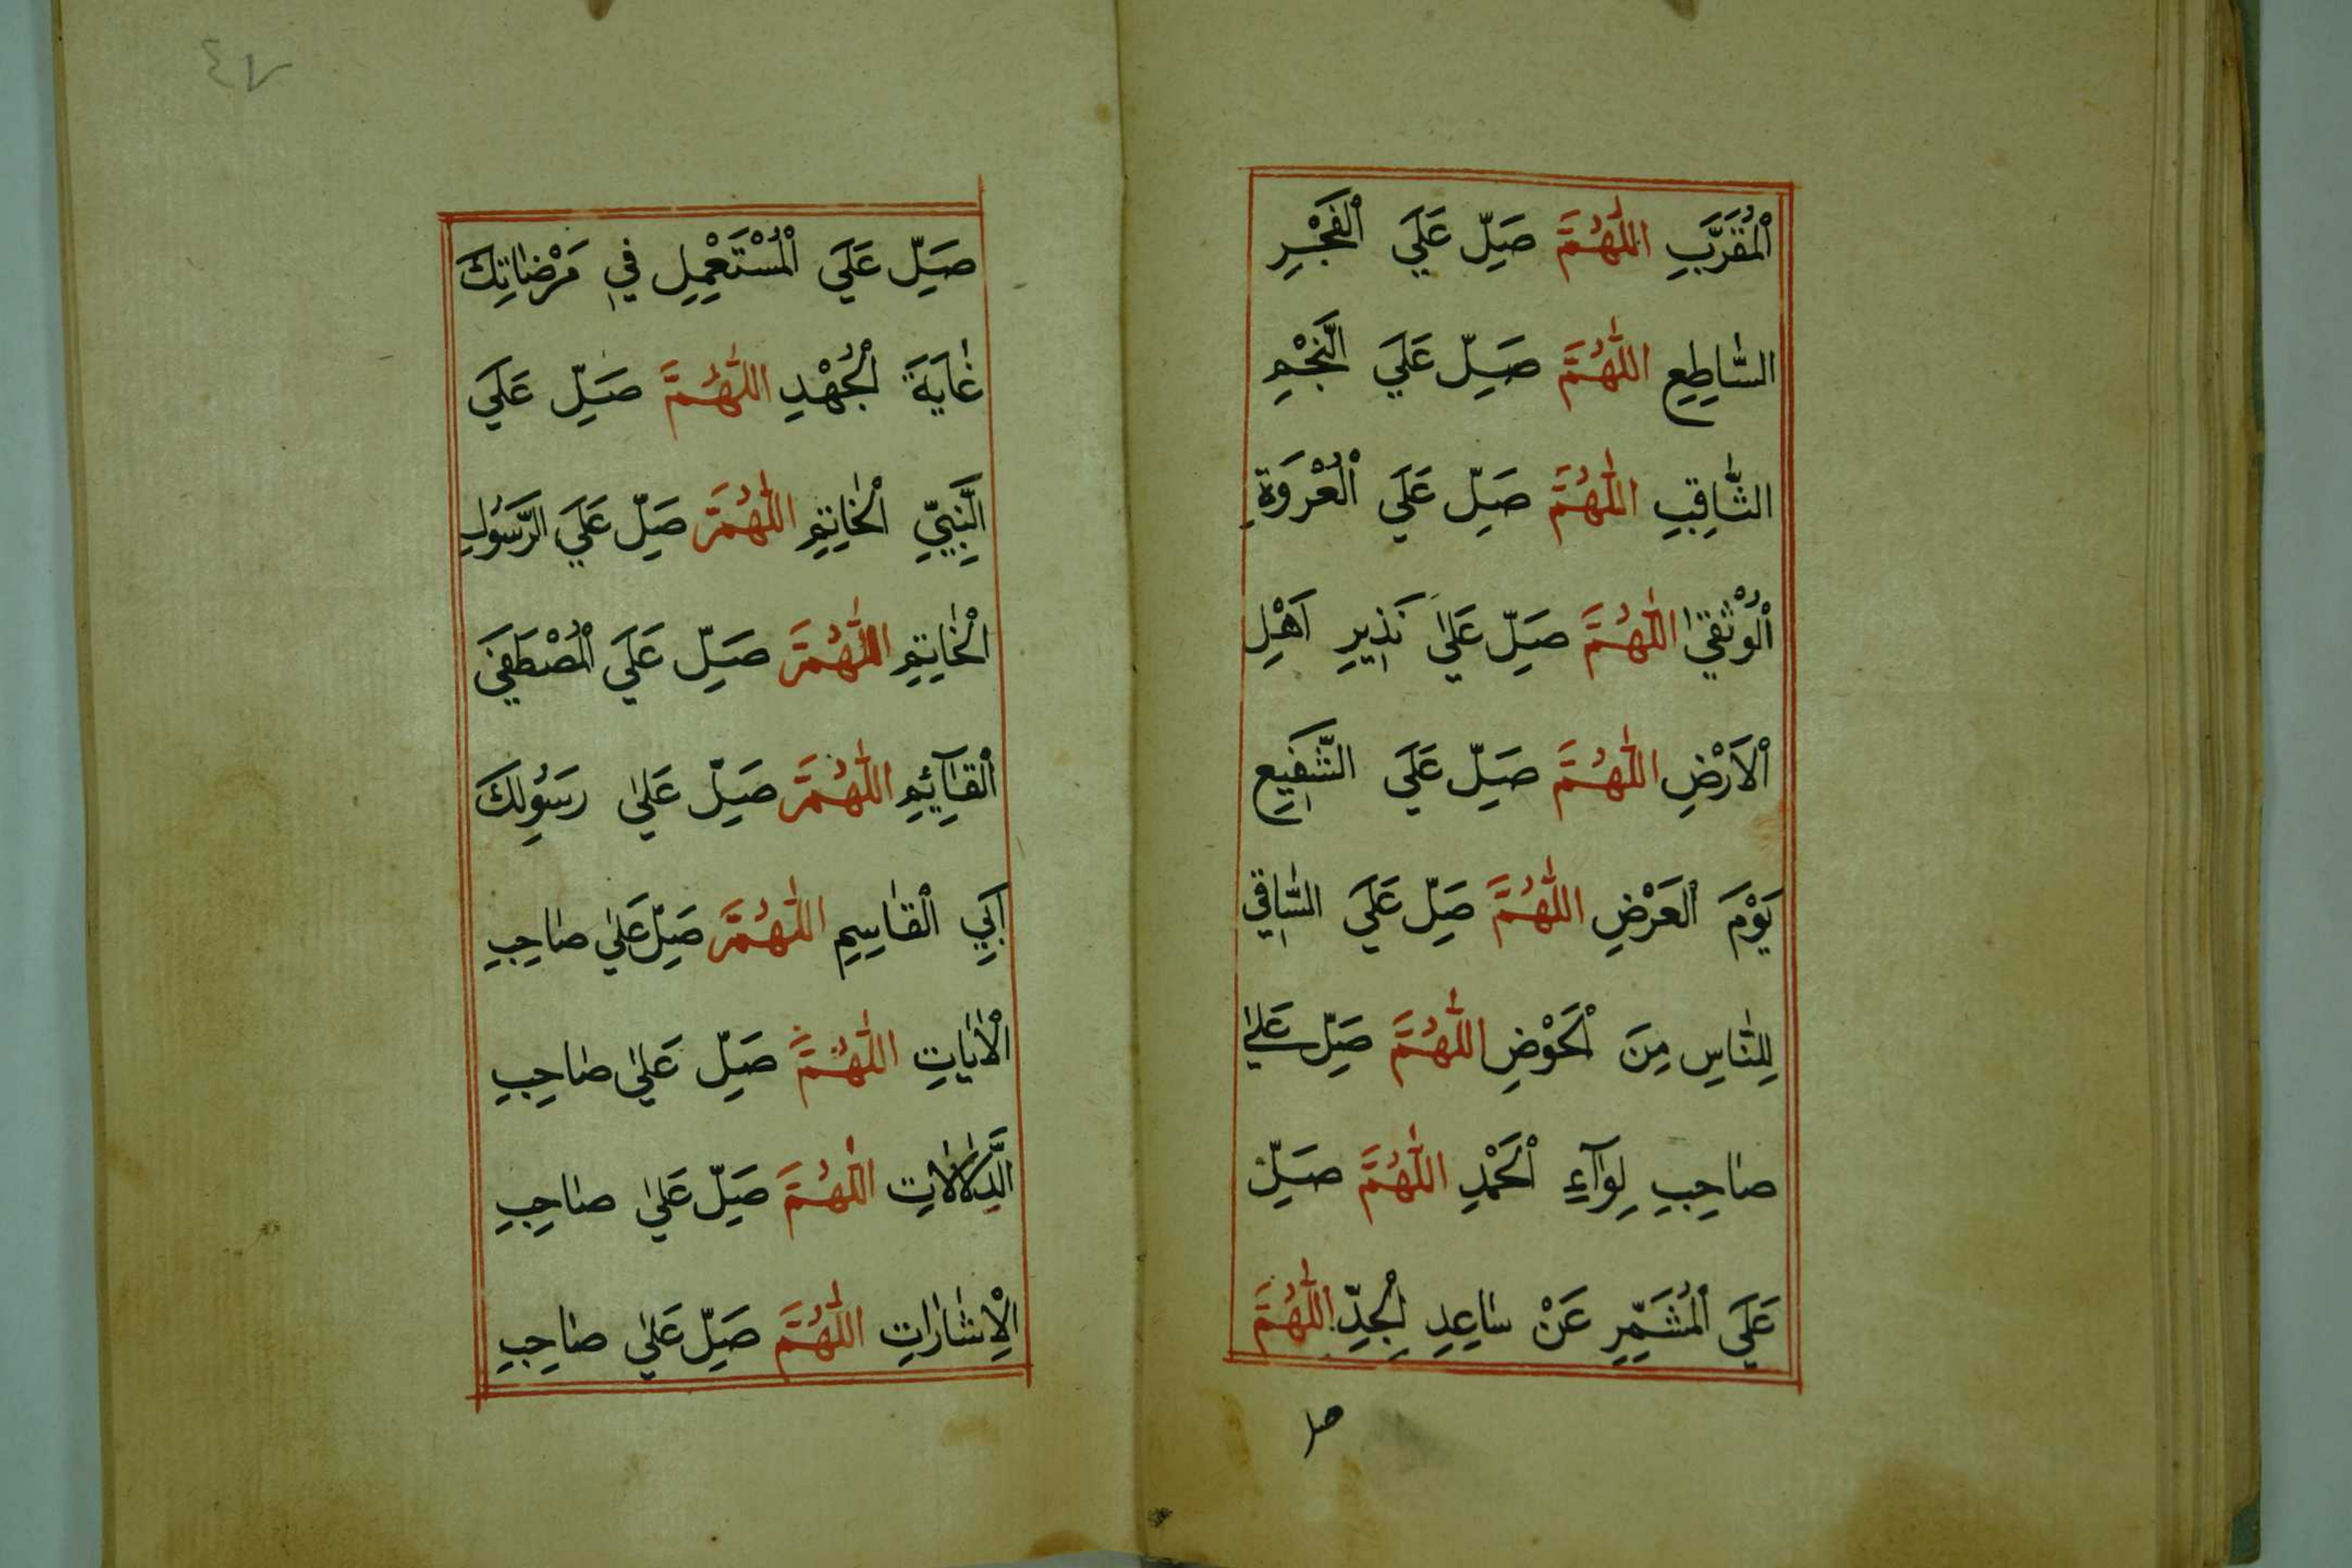 اَلْمُقَرَّبِ اَللّٰهُمَّ صَلِّ عَلَي الْفَجْرِ
السَّاطِعِ اَللّٰهُمَّ صَلِّ عَلَي النَّجْمِ
الثَّاقِبِ اَللّٰهُمَّ صَلِّ عَلَي الْعُرْوَةِ
الْوُثْقٰي اَللّٰهُمَّ صَلِّ عَلٰي نَذِيرِ اَهْلِ
الْاَرْضِ اَللّٰهُمَّ صَلِّ عَلَي الشَّفِيعِ
يَوْمَ الْعَرْضِ اَللّٰهُمَّ صَلِّ عَلَي السَّاقِي
لِلنَّاسِ مِنَ الْحَوْضِ اَللّٰهُمَّ صَلِّ عَلٰي
صَاحِبِ لِوَآءِ الْحَمْدِ اَللّٰهُمَّ صَلِّ
عَلَي الْمُشَمِّرِ عَنْ سَاعِدِ الْجِدِّ اَللّٰهُمَّ
صل
٤٧
صَلِّ عَلَي الْمُسْتَعْمِلِ فِي مَرْضَاتِكَ
غَايَةَ الْجُهْدِ اَللّٰهُمَّ صَلِّ عَلَي
النَّبِيِّ الْخَاتِمِ اَللّٰهُمَّ صَلِّ عَلَي الرَّسُولِ
الْخَاتِمِ اَللّٰهُمَّ صَلِّ عَلَي الْمُصْطَفَي
الْقَآئِمِ اَللّٰهُمَّ صَلِّ عَلٰي رَسُولِكَ
اَبِي الْقَاسِمِ اَللّٰهُمَّ صَلِّ عَلٰي صَاحِبِ
الْاٰيَاتِ اَللّٰهُمَّ صَلِّ عَلٰي صَاحِبِ
الدَّلَالَاتِ اَللّٰهُمَّ صَلِّ عَلٰي صَاحِبِ
الْاِشَارَاتِ اَللّٰهُمَّ صَلِّ عَلٰي صَاحِبِ